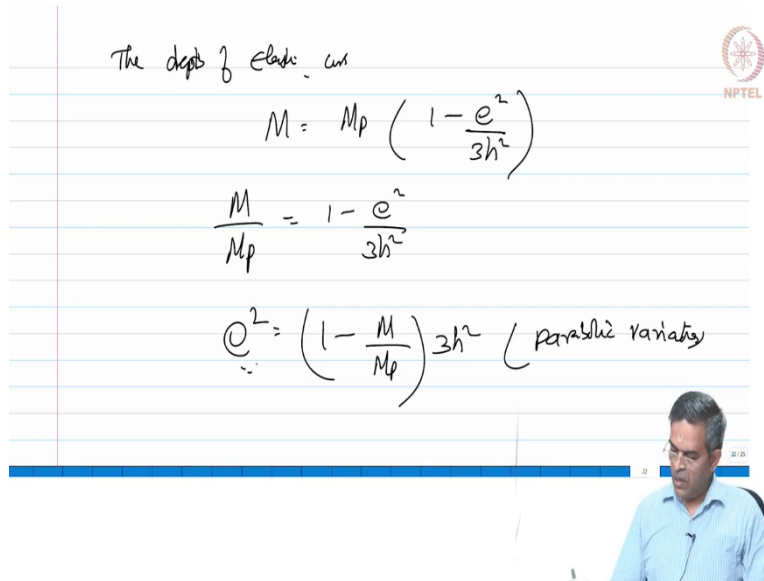 The depth of Elastic core
M = Mp ( 1 - e² / 3h² )
NPTEL
M / Mp = 1 - e² / 3h²
e² = ( 1 - M / Mp ) 3h² ( parabolic variation
22 / 25
22